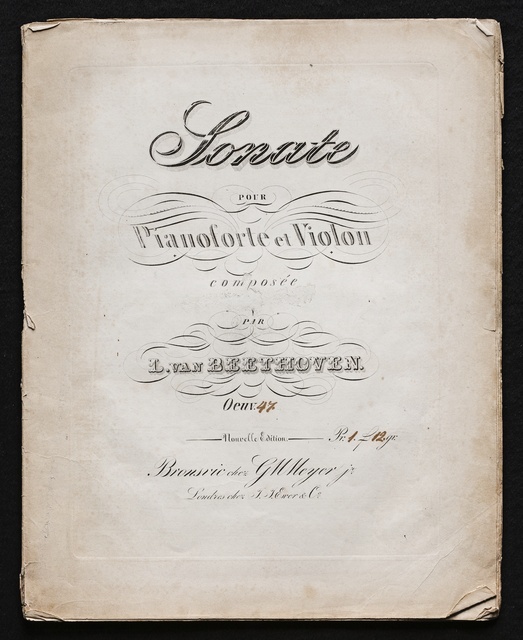 Sonate
POUR
Pianoforte et Violon
composée
PAR
L. VAN BEETHOVEN.
Oeuv. 47
Nouvelle Edition. Pr. 1. 12 gr.
Bronsvic chez G M Meyer jr
Londres chez J. J. Ewer & Co